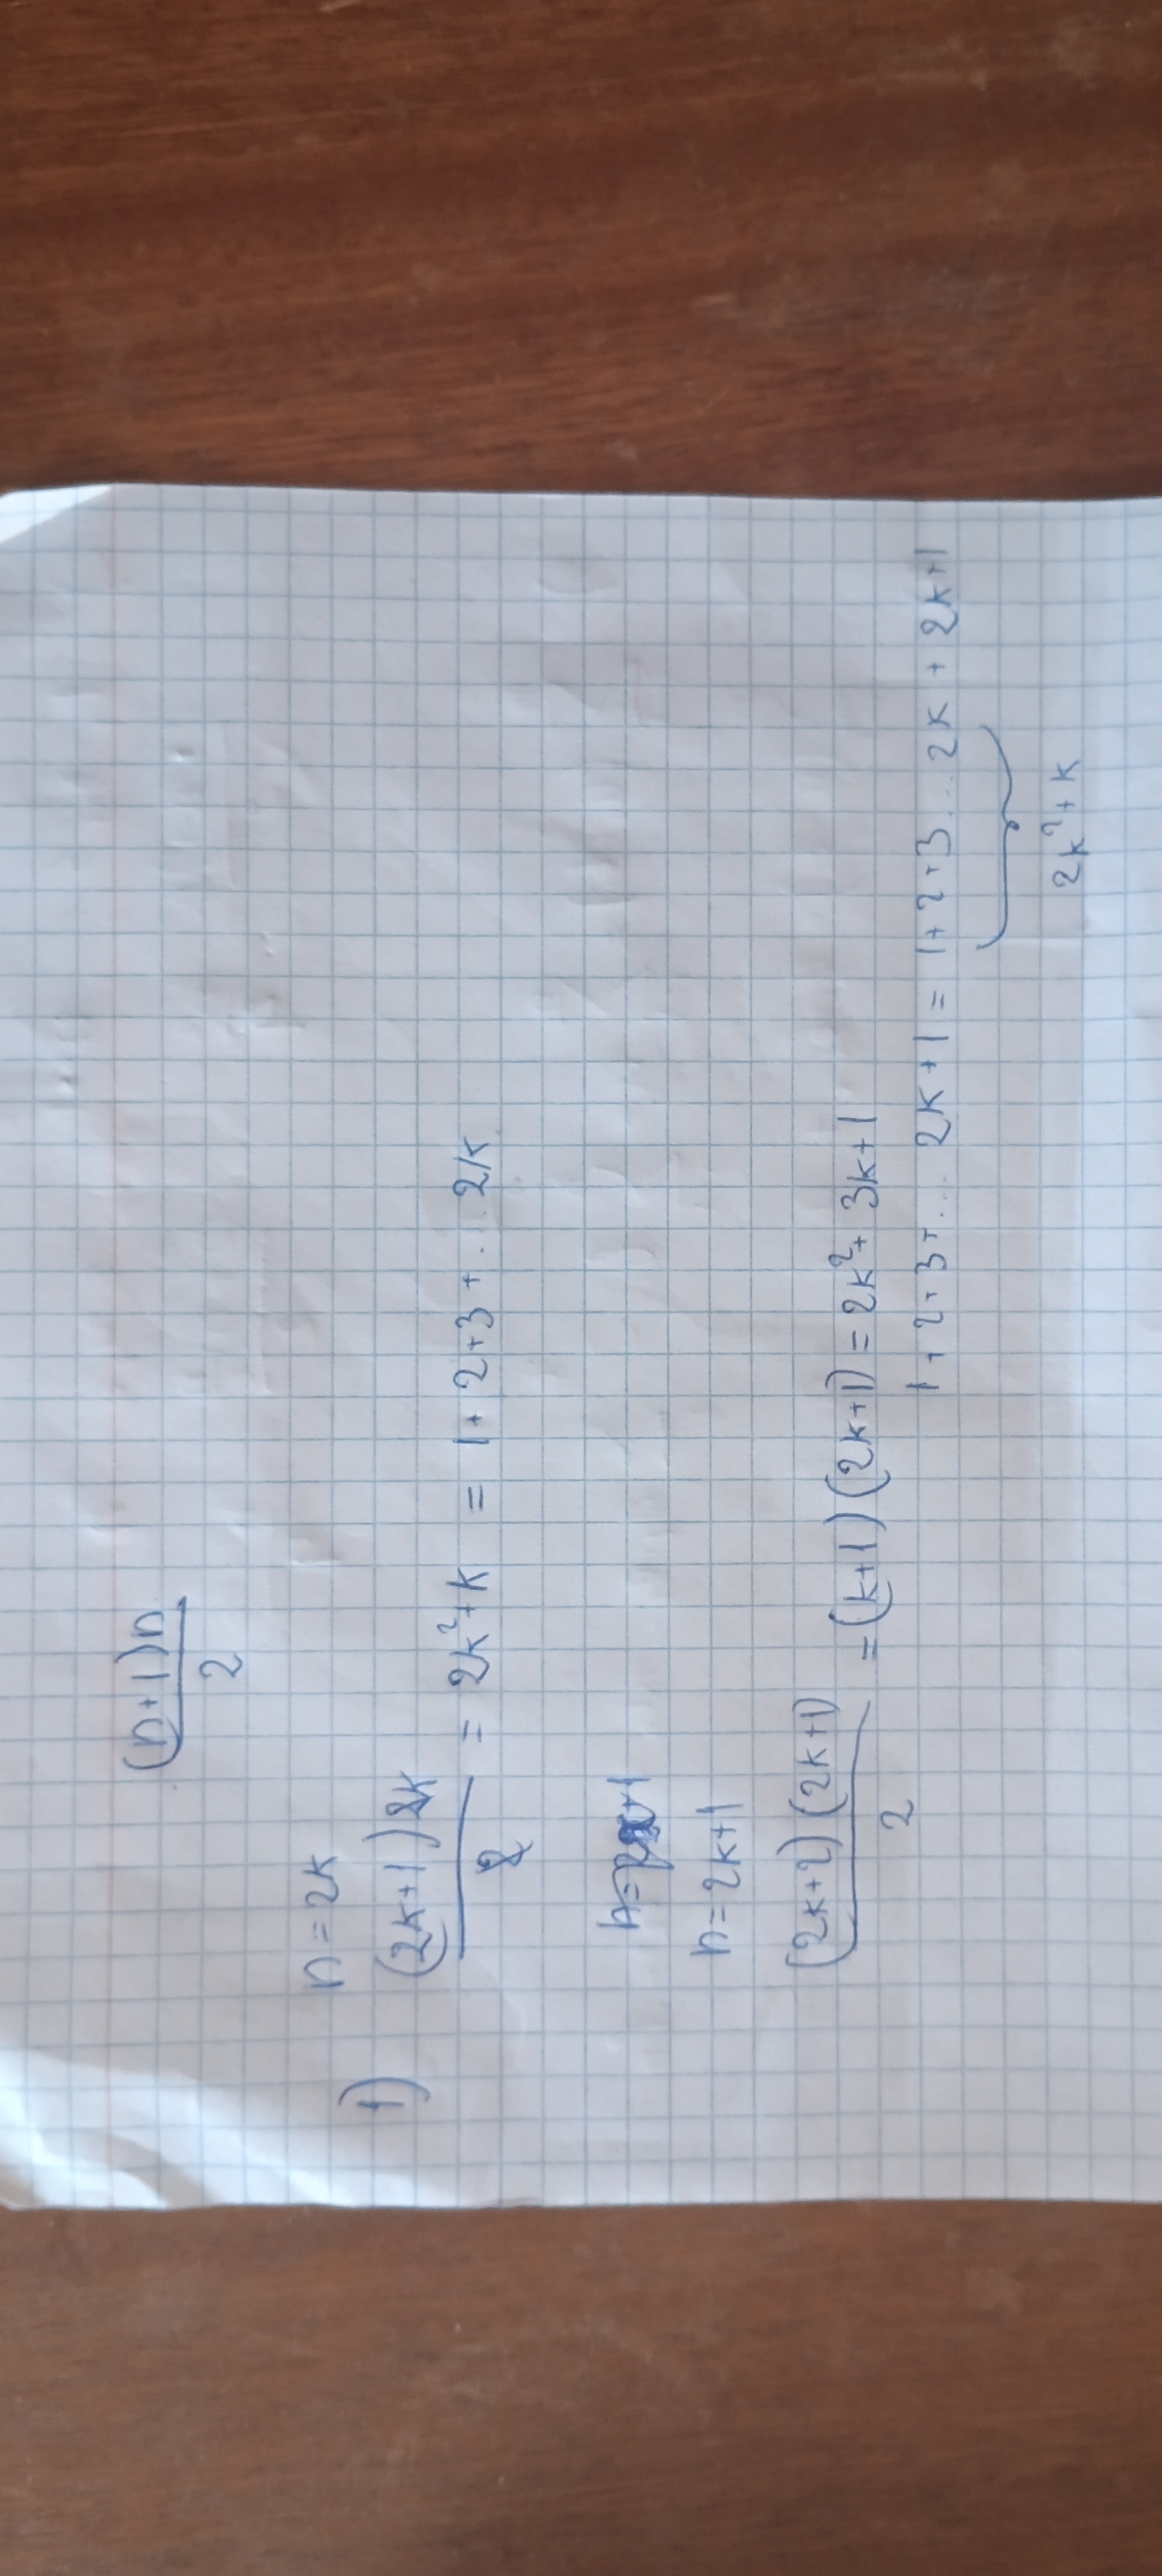 (n+1)n
2
n=2k
1) (2k+1)2k
2
= 2k²+k = 1+2+3+...2k
n=2k+1
(2k+2)(2k+1)
2
=(k+1)(2k+1)=2k²+3k+1
1+2+3+...2k+1=1+2+3...2k+2k+1
2k²+k